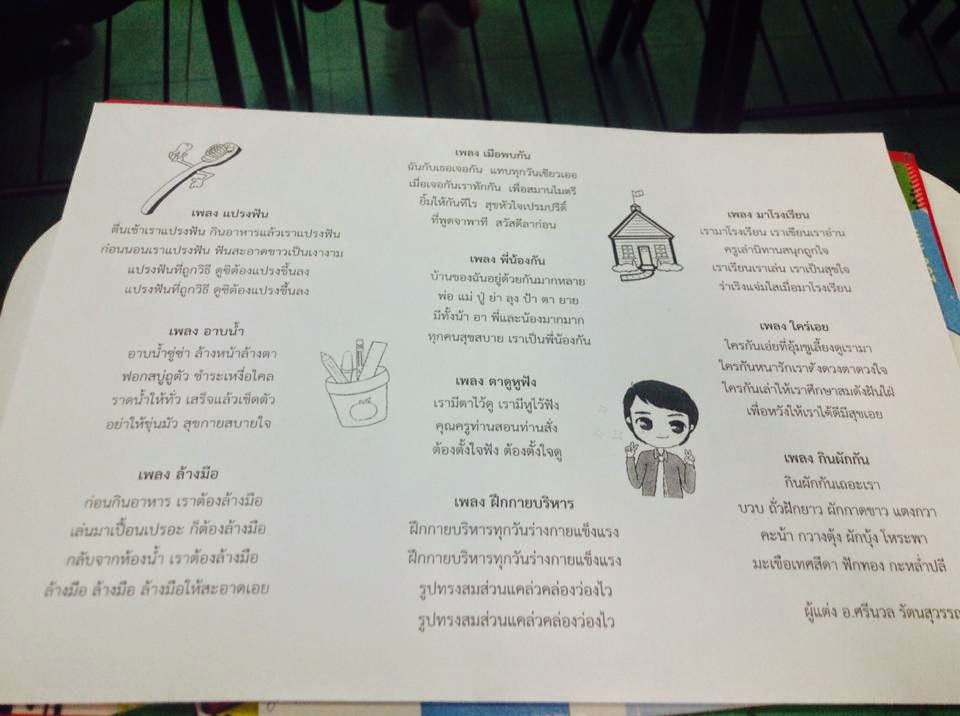 เพลง แปรงฟัน
ตื่นเช้าเราแปรงฟัน กินอาหารแล้วเราแปรงฟัน
ก่อนนอนเราแปรงฟัน ฟันสะอาดขาวเป็นเงางาม
แปรงฟันที่ถูกวิธี ดูซิต้องแปรงขึ้นลง
แปรงฟันที่ถูกวิธี ดูซิต้องแปรงขึ้นลง
เพลง อาบน้ำ
อาบน้ำซู่ซ่า ล้างหน้าล้างตา
ฟอกสบู่ถูตัว ชำระเหงื่อไคล
ราดน้ำให้ทั่ว เสร็จแล้วเช็ดตัว
อย่าให้ขุ่นมัว สุขกายสบายใจ
เพลง ล้างมือ
ก่อนกินอาหาร เราต้องล้างมือ
เล่นมาเปื้อนเปรอะ ก็ต้องล้างมือ
กลับจากห้องน้ำ เราต้องล้างมือ
ล้างมือ ล้างมือ ล้างมือให้สะอาดเอย
เพลง เมื่อพบกัน
ฉันกับเธอเจอกัน แทบทุกวันเชียวเออ
เมื่อเจอกันเราทักกัน เพื่อสมานไมตรี
ยิ้มให้กันทีไร สุขหัวใจเปรมปรีดิ์
ที่พูดจาพาที สวัสดีลาก่อน
เพลง พี่น้องกัน
บ้านของฉันอยู่ด้วยกันมากหลาย
พ่อ แม่ ปู่ ย่า ลุง ป้า ตา ยาย
มีทั้งน้า อา พี่และน้องมากมาก
ทุกคนสุขสบาย เราเป็นพี่น้องกัน
เพลง ตาดูหูฟัง
เรามีตาไว้ดู เรามีหูไว้ฟัง
คุณครูท่านสอนท่านสั่ง
ต้องตั้งใจฟัง ต้องตั้งใจดู
เพลง ฝึกกายบริหาร
ฝึกกายบริหารทุกวันร่างกายแข็งแรง
ฝึกกายบริหารทุกวันร่างกายแข็งแรง
รูปทรงสมส่วนแคล่วคล่องว่องไว
รูปทรงสมส่วนแคล่วคล่องว่องไว
เพลง มาโรงเรียน
เรามาโรงเรียน เราเขียนเราอ่าน
ครูเล่านิทานสนุกถูกใจ
เราเรียนเราเล่น เราเป็นสุขใจ
ร่าเริงแจ่มใสเมื่อมาโรงเรียน
เพลง ใครเอย
ใครกันเอ่ยที่อุ้มชูเลี้ยงดูเรามา
ใครกันหนารักเราดังดวงตาดวงใจ
ใครกันเล่าให้เราศึกษาสมดังฝันใฝ่
เพื่อหวังให้เราได้ดีมีสุขเอย
เพลง กินผักกัน
กินผักกันเถอะเรา
บวบ ถั่วฝักยาว ผักกาดขาว แตงกวา
คะน้า กวางตุ้ง ผักบุ้ง โหระพา
มะเขือเทศสีดา ฟักทอง กะหล่ำปลี
ผู้แต่ง อ.ศรีนวล รัตนสุวรรณ